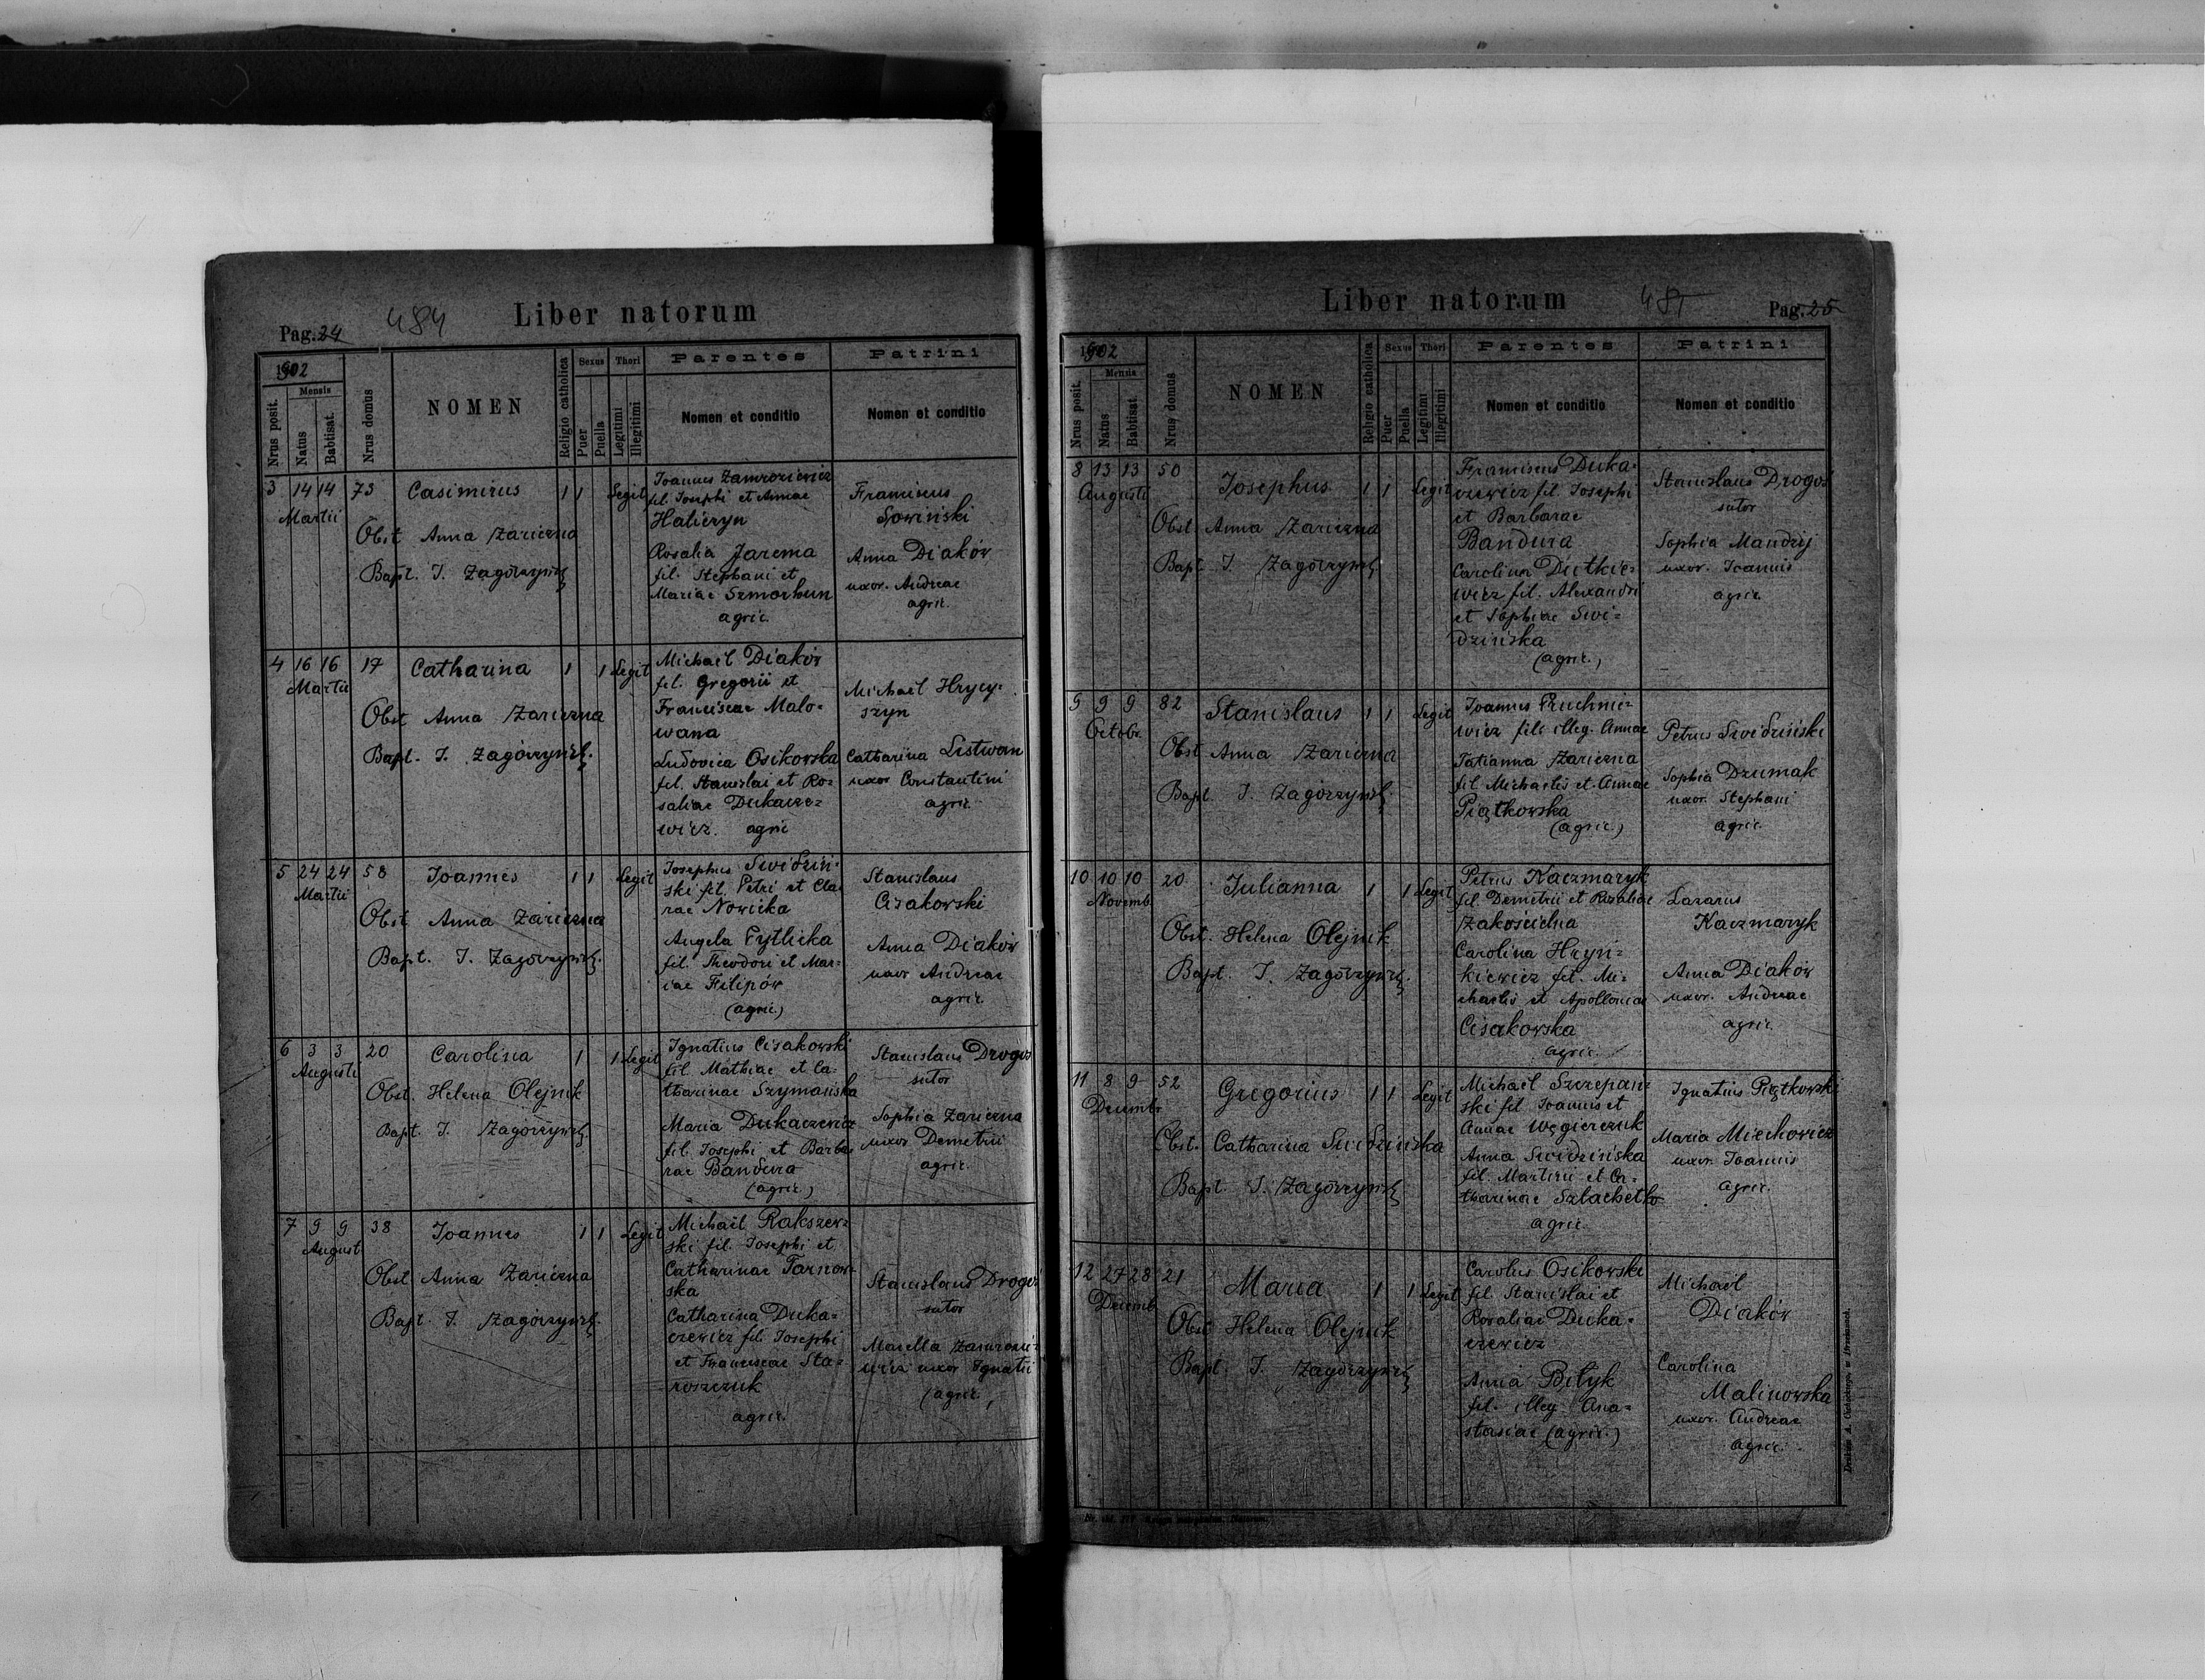 Pag. 24
484
Liber natorum
1902
Nrus posit.
Mensis
Natus
Babtisat.
Nrus domus
NOMEN
Religio catholica
Sexus
Puer
Puella
Thori
Legitimi
Illegitimi
Parentes
Nomen et conditio
Patrini
Nomen et conditio
3 14 14 73 Casimirus 1 1 Legit
Martii
Obst Anna Zariczna
Bapt. J. Zagórzyński
Joannes Zamroziewicz
fil. Josephi et Annae
Haliczyn
Rosalia Jarema
fil. Stephani et
Mariae Szmorhun
agric.
Franciscus
Sowiński
Anna Diaków
uxor. Andreae
agric.
4 16 16 17 Catharina 1 1 Legit
Martii
Obst Anna Zariczna
Bapt. J. Zagórzyński.
Michaël Diaków
fil. Gregorii et
Franciscae Malo-
wana
Ludovica Osikowska
fil. Stanislai et Ro-
saliae Dukacze-
wicz. agric
Michaël Hrycy-
szyn
Catharina Listwan
uxor Constantini
agric.
5 24 24 58 Joannes 1 1 Legit
Martii
Obst Anna Zariczna
Bapt. J. Zagórzyński.
Josephus Swidziń-
ski fil. Petri et Cla-
rae Nowicka
Angela Pytlicka
fil. Theodori et Mar-
iae Filipów
(agric.)
Stanislaus
Cisakowski
Anna Diaków
uxor Andreae
agric.
6 3 3 20 Carolina 1 1 Legit
Augusti
Obst. Helena Olejnik
Bapt. J. Zagórzyński.
Ignatius Cisakowski
fil. Mathiae et Ca-
tharinae Szymańska
Maria Dukaczewicz
fil. Josephi et Barba-
rae Bandura
(agric.)
Stanislaus Drogoś
sutor
Sophia Zariczna
uxor Demetrii
agric.
7 9 9 38 Joannes 1 1 Legit
August
Obst Anna Zariczna
Bapt. J. Zagórzyński.
Michaël Rakszew-
ski fil. Josephi et
Catharinae Tarnow-
ska
Catharina Duka-
czewicz fil. Josephi
et Franciscae Sta-
roszczuk
agric.
Stanislaus Drogoś
sutor
Marella Zamrozie-
wicz uxor Ignatii
(agric.)
Liber natorum
485
Pag. 25
1902
Nrus posit.
Mensis
Natus
Babtisat.
Nrus domus
NOMEN
Religio catholica
Sexus
Puer
Puella
Thori
Legitimi
Illegitimi
Parentes
Nomen et conditio
Patrini
Nomen et conditio
8 13 13 50 Josephus 1 1 Legit
Augusti
Obst Anna Zariczna
Bapt J. Zagórzyński
Franciscus Duka-
czewicz fil. Josephi
et Barbarae
Bandura
Carolina Dutkie-
wicz fil. Alexandri
et Sophiae Swi-
dzińska
(agric.)
Stanislaus Drogoś
sutor
Sophia Mandzij
uxor. Joannis
agric.
9 9 9 82 Stanislaus 1 1 Legit
Octobr.
Obst Anna Zariczna
Bapt J. Zagórzyński.
Joannes Pruchnie-
wicz fil. illeg. Annae
Tatianna Zariczna
fil Michaelis et Annae
Piątkowska
(agric.)
Petrus Swidziński
Sophia Dzumak
uxor. Stephani
agric.
10 10 10 20 Julianna 1 1 Legit
Novemb.
Obst. Helena Olejnik
Bapt. J. Zagórzyński.
Petrus Kaczmaryk
fil. Demetrii et Rosaliae
Zakościelna
Carolina Hryń-
kiewicz fil. Mi-
chaelis et Apolloniae
Cisakowska
agric.
Lazarus
Kaczmaryk
Anna Diaków
uxor. Andreae
agric.
11 8 9 52 Gregorius 1 1 Legit
Decembr.
Obst. Catharina Swidzińska
Bapt. J. Zagórzyński
Michaël Szczepań-
ski fil Joannis et
Annae Węgierczuk
Anna Swidzińska
fil. Martini et Ca-
tharinae Szlachetko
agric.
Ignatius Piątkowski
Maria Miechowicz
uxor. Joannis
agric.
12 27 28 21 Maria 1 1 Legit
Decemb.
Obst Helena Olejnik
Bapt J. Zagórzyński
Carolus Osikowski
fil. Stanislai et
Rosaliae Duka-
czewicz
Anna Bilyk
fil. illeg Ana-
stasiae (agric.)
Michaël
Diaków
Carolina
Malinowska
uxor. Andreae
agric.